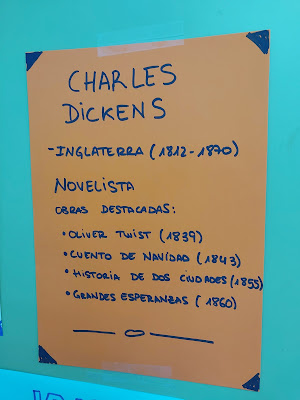 CHARLES
DICKENS
- INGLATERRA (1812-1870)
NOVELISTA
OBRAS DESTACADAS:
• OLIVER TWIST (1839)
• CUENTO DE NAVIDAD (1843)
• HISTORIA DE DOS CIUDADES (1859)
• GRANDES ESPERANZAS (1860)